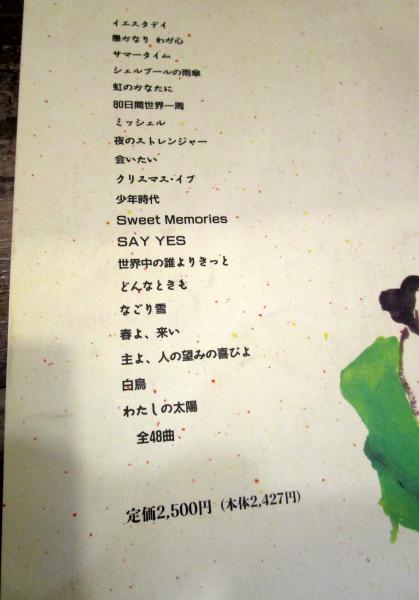 イエスタデイ
愚かなり わが心
サマータイム
シェルブールの雨傘
虹のかなたに
80日間世界一周
ミッシェル
夜のストレンジャー
会いたい
クリスマス・イブ
少年時代
Sweet Memories
SAY YES
世界中の誰よりきっと
どんなときも
なごり雪
春よ、来い
主よ、人の望みの喜びよ
白鳥
わたしの太陽
全48曲
定価2,500円（本体2,427円）